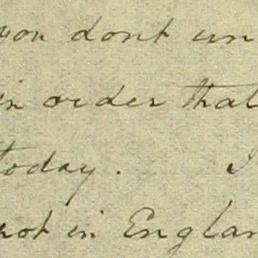 you dont un
in order that
today. I
not in England